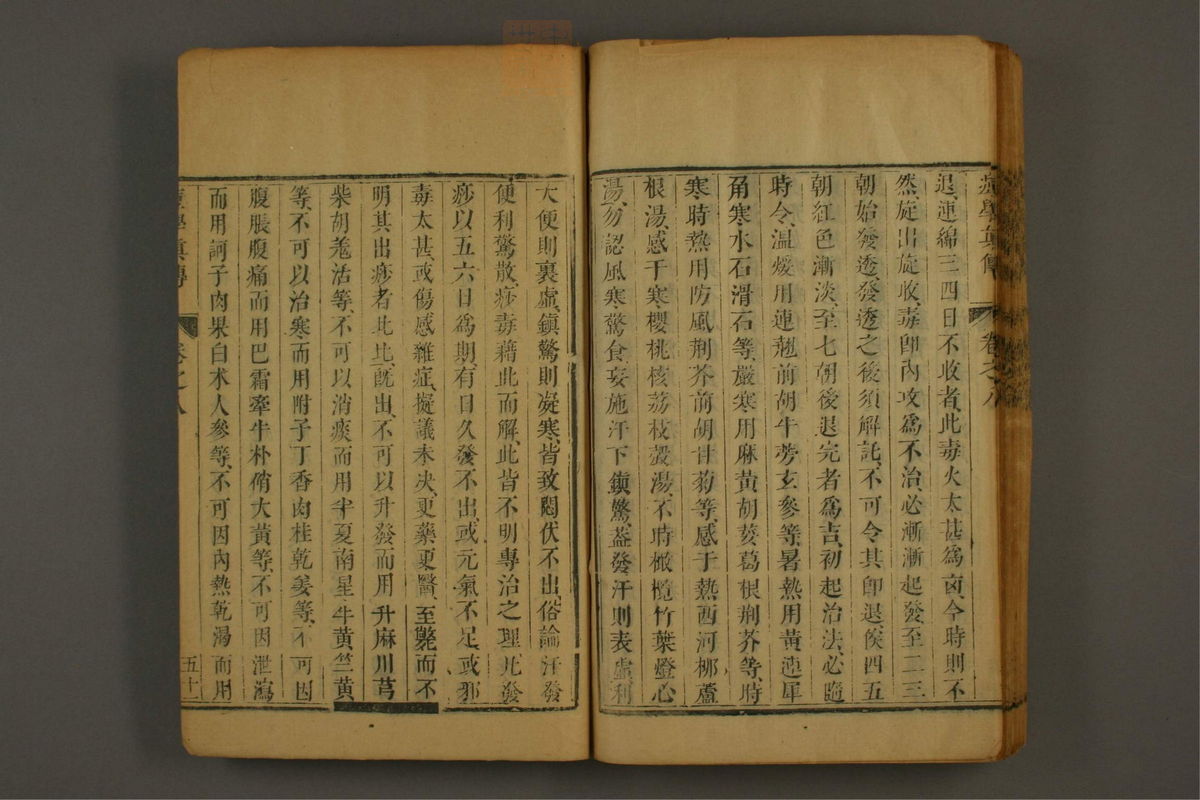 痘學真傳 卷之八
退、連綿三四日不收者、此毒火太甚爲凶、今時則不
然、旋出旋收、毒卽內攻、爲不治、必漸漸起發、至二三
朝始發透、發透之後須解託、不可令其卽退、俟四五
朝紅色漸淡、至七朝後退完者爲吉、初起治法、必隨
時令、溫煖用連翹前胡牛蒡玄參等、暑熱用黃連犀
角寒水石滑石等、嚴寒用麻黃胡荽葛根荊芥等、時
寒時熱用防風荊芥前胡甘菊等、感于熱西河柳蘆
根湯、感于寒櫻桃核荔枝殼湯、不時橄欖竹葉燈心
湯、勿認風寒驚食、妄施汗下鎮驚、蓋發汗則表虛、利
大便則裏虛、鎮驚則凝寒、皆致悶伏不出、俗論汗發
便利驚散、痧毒藉此而解、此皆不明專治之理、凡發
痧以五六日爲期、有日久發不出、或元氣不足、或邪
毒太甚、或傷感雜症、擬議未决、更藥更醫、至斃而不
明其出痧者比比、旣出、不可以升發而用升麻川芎
柴胡羗活等、不可以消痰而用半夏南星牛黃竺黃
等、不可以治寒而用附子丁香肉桂乾姜等、不可因
腹脹腹痛而用巴霜牽牛朴硝大黃等、不可因泄瀉
而用訶子肉果白术人參等、不可因內熱乾渴而用
痘學真傳 卷之八 五十